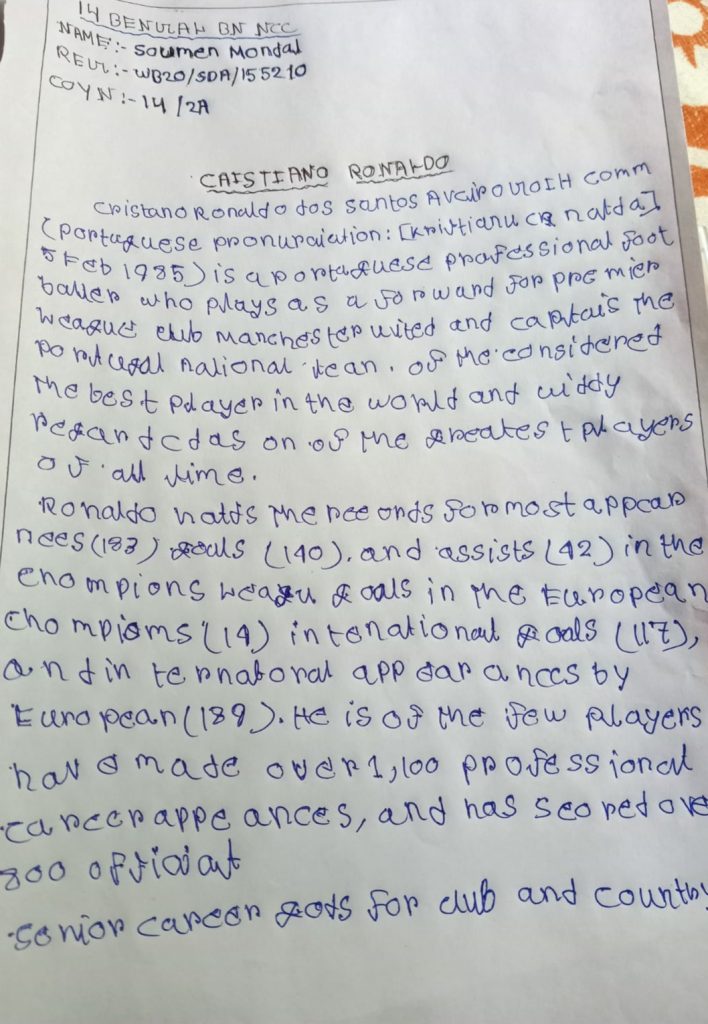 14 BENGAL BN NCC
NAME:- Soumen Mondal
REGI:- WB20/SDA/155210
COYN:- 14/2A
CRISTIANO RONALDO
Cristano Ronaldo dos Santos Aveiro comm
(portuguese pronunciation: [Kristianu
5 Feb 1985) is a portuguese professional foot
baller who plays as a forward for premier
league club Manchester united and captais the
portugal national tean. of the considered
the best player in the world and widdy
regardcd as on of the greatest players
of all time.
Ronaldo holds the records for most appear
nces (183) goals (140). and assists (42) in the
chompions leagu goals in the European
chompioms (14) intenational goals (117),
and internatonal appearances by
European (189). He is of the few players
have made over 1,100 professional
career appeances, and has scored ove
800 official
senior career goals for club and country